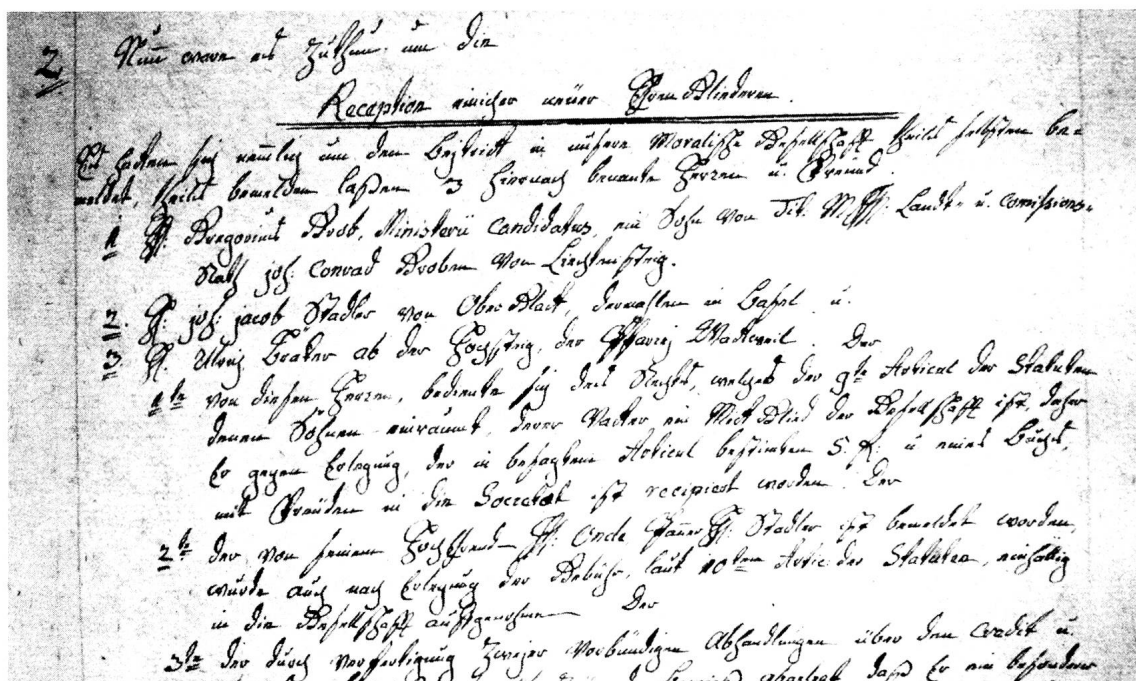 2 Nun ware es Zuthun, um die
Reception einicher neüer Ehren Gliederen.
Eß hatten sich nemlich um den Beytridt in unsere Moralische Gesellschafft theils selbsten be=
meldet, theils bemelden laßen 3 hiernach benante Herren u. Freünd.
1 H. Gregorius Grob, Ministerii Candidatus, ein Sohn von Tit. Landt- u. Commissions-
Rath joh: Conrad Groben von Liechtensteig.
2. H. joh: jacob Stadler von Ober Glatt, dermahlen in Basel u.
3 H. Ulrich Bräker ab der Hochsteig, der Pfarrey Wattweil. Der
1te von diesen Herren, bediente sich des Rechts, welches der 9te Articul der Statuten
denen Söhnen einraumt, derer Vatter ein Mit Glied der Gesellschafft ist, daher
Er gegen Erlegung, der in besagtem Articul bestimten 5 fl: u eines Buchs,
mit Freüden in die Societet ist recipiert worden. Der
2te der von seinem HochEhrend H: Oncle H: Stadler ist bemeldet worden,
wurde auch nach Erlegung der Gebühr, laut 10tem Artic: der Statuten, einhällig
in die Gesellschafft aufgenohmen Der
3te der durch Verfertigung Zweyer Vorbündigen Abhandlungen über den Credit u.
daß Er ein besonderer